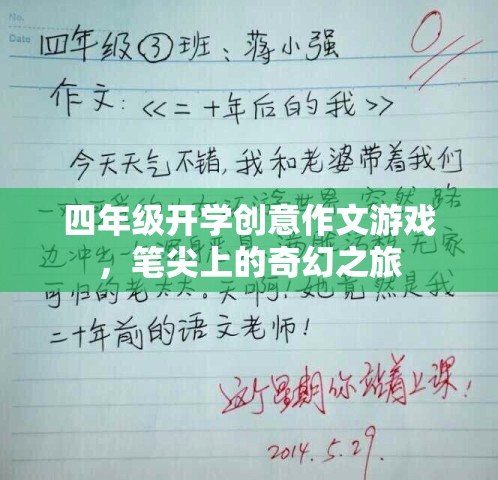 No.
Date
四年级③班：蒋小强
0
作文：<<二十年后的我>>
今天天气不错，我和老婆带着我们
四年级开学创意作文游戏
，笔尖上的奇幻之旅
可归的老太太。天啊！她竟然是我
二十年前的语文老师！
这个星期你站着上课！
2014.5.29.